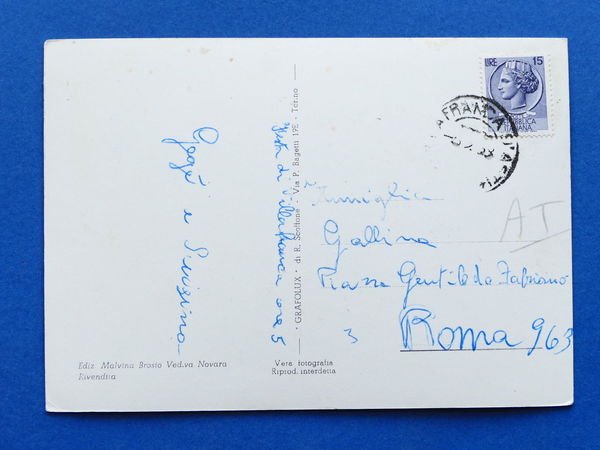 LIRE 15
REPUBBLICA
ITALIANA
VILLAFRANCA D'ASTI
Gegè e Susina
Festa di Villafranca ore 5
GRAFOLUX • di R. Scottone - Via P. Bagetti 19E - Torino
AT
Famiglia
Gallina
Piazza Gentile da Fabriano
3
Roma 963
Ediz Malvina Brosio Ved.va Novara
Rivendita
Vera fotografia
Riprod. interdetta